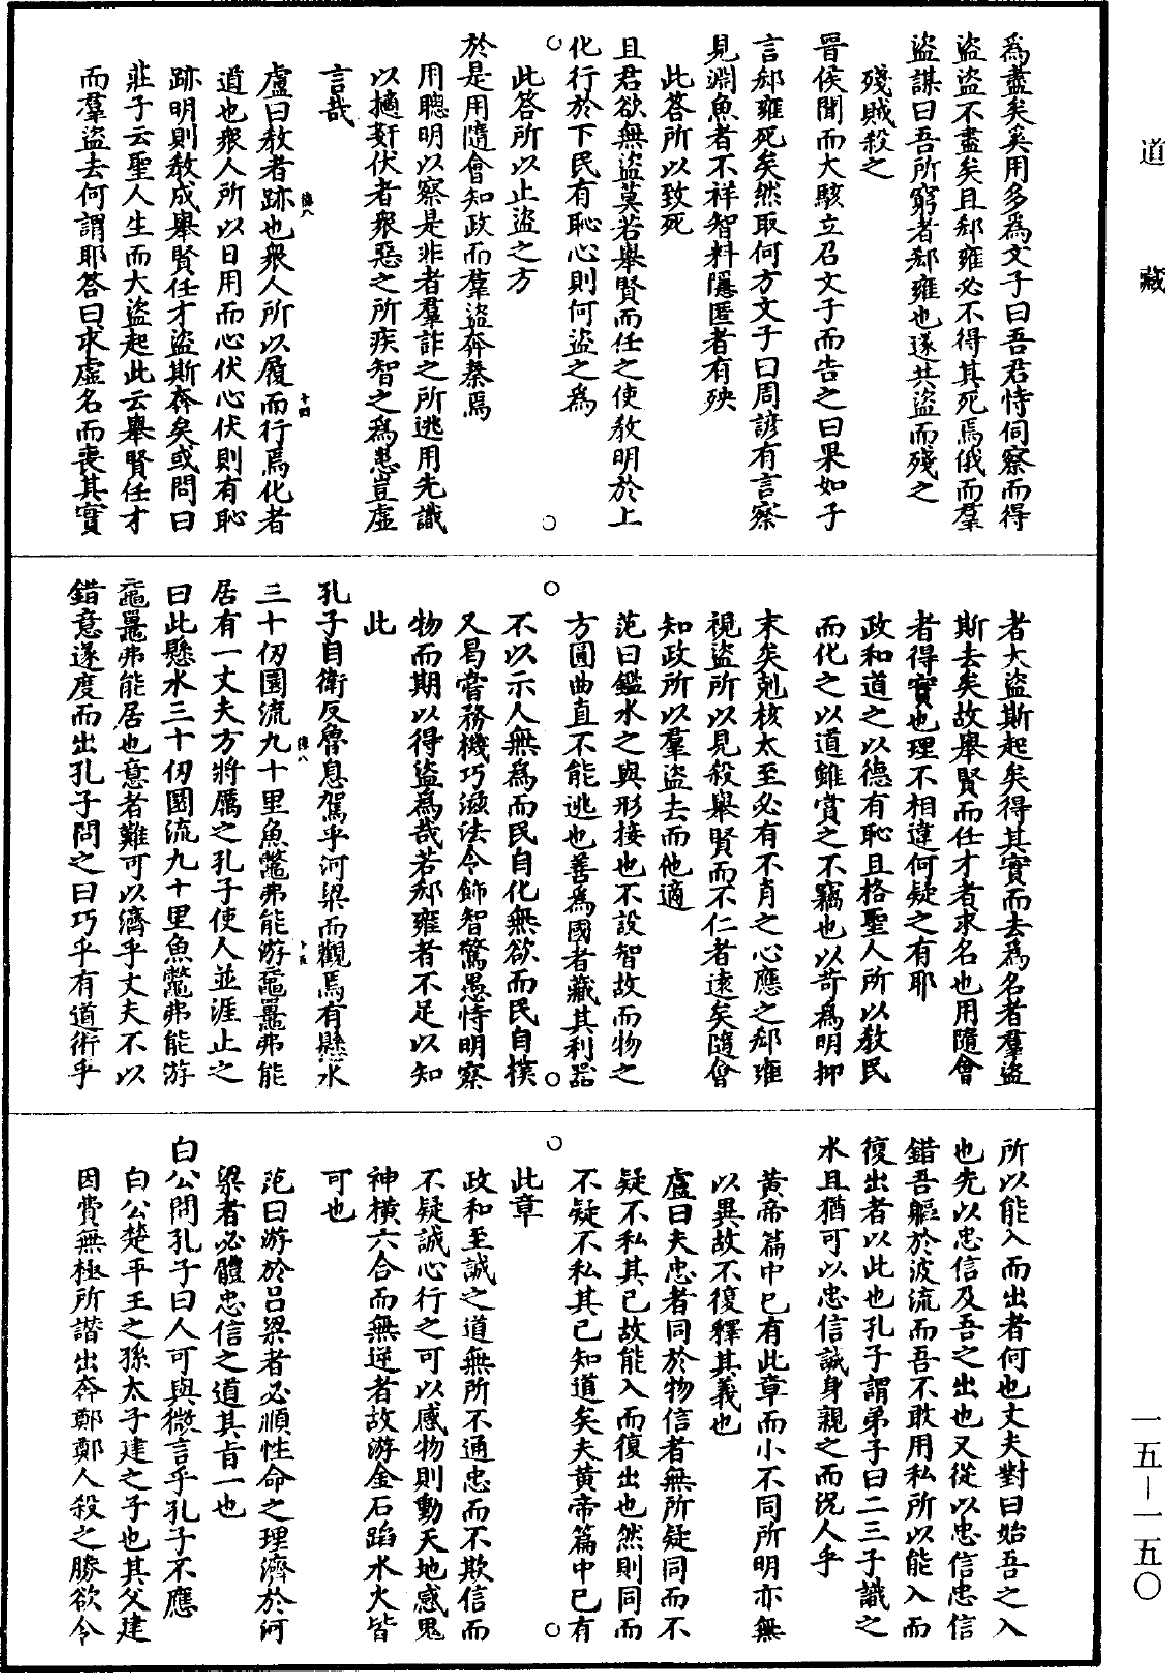 道藏
為盡矣奚用多為文子曰吾君恃伺察而得
盜盜不盡矣且郄雍必不得其死焉俄而羣
盜謀曰吾所窮者郄雍也遂共盜而殘之
殘賊殺之
晉侯聞而大駭立召文子而告之曰果如子
言郄雍死矣然取何方文子曰周諺有言察
見淵魚者不祥智料隱匿者有殃
此答所以致死
且君欲無盜莫若舉賢而任之使教明於上
化行於下民有恥心則何盜之為
此答所以止盜之方
於是用隨會知政而羣盜奔秦焉
用聰明以察是非者羣詐之所逃用先識
以擿姧伏者衆惡之所疾智之為患豈虛
言哉
盧曰教者跡也衆人所以履而行焉化者
道也衆人所以日用而心伏心伏則有恥
跡明則教成舉賢任才盜斯奔矣或問曰
莊子云聖人生而大盜起此云舉賢任才
而羣盜去何謂耶答曰求虛名而喪其實
者大盜斯起矣得其實而去為名者羣盜
斯去矣故舉賢而任才者求名也用隨會
者得實也理不相違何疑之有耶
政和道之以德有恥且格聖人所以教民
而化之以道雖賞之不竊也以苛為明抑
末矣剋核太至必有不肖之心應之郄雍
視盜所以見殺舉賢而不仁者遠矣隨會
知政所以羣盜去而他適
范曰鑑水之與形接也不設智故而物之
方圓曲直不能逃也善為國者藏其利器
不以示人無為而民自化無欲而民自樸
又曷嘗務機巧滋法令飾智驚愚恃明察
物而期以得盜為哉若郄雍者不足以知
此
孔子自衛反魯息駕乎河梁而觀焉有懸水
三十仞圜流九十里魚鱉弗能游黿鼉弗能
居有一丈夫方將厲之孔子使人並涯止之
曰此懸水三十仞圜流九十里魚鱉弗能游
黿鼉弗能居也意者難可以濟乎丈夫不以
錯意遂度而出孔子問之曰巧乎有道術乎
所以能入而出者何也丈夫對曰始吾之入
也先以忠信及吾之出也又從以忠信忠信
錯吾軀於波流而吾不敢用私所以能入而
復出者以此也孔子謂弟子曰二三子識之
水且猶可以忠信誠身親之而況人乎
黄帝篇中已有此章而小不同所明亦無
以異故不復釋其義也
盧曰夫忠者同於物信者無所疑同而不
疑不私其己故能入而復出也然則同而
不疑不私其己知道矣夫黄帝篇中已有
此章
政和至誠之道無所不通忠而不欺信而
不疑誠心行之可以感物則動天地感鬼
神橫六合而無逆者故游金石蹈水火皆
可也
范曰游於呂梁者必順性命之理濟於河
梁者必體忠信之道其㫖一也
白公問孔子曰人可與微言乎孔子不應
白公楚平王之孫太子建之子也其父建
因費無極所譖出奔鄭鄭人殺之勝欲令
一五－一五〇